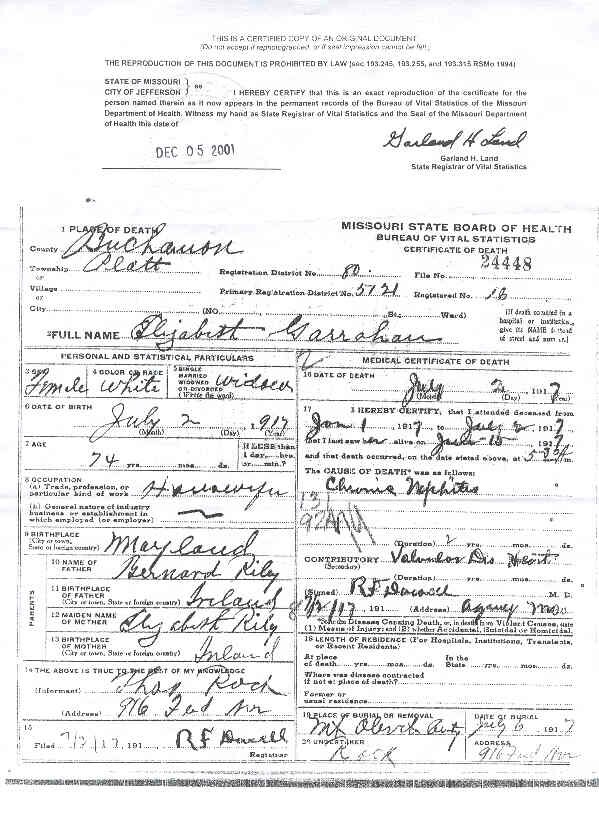 THIS IS A CERTIFIED COPY OF AN ORIGINAL DOCUMENT
(Do not accept if rephotographed, or if seal impression cannot be felt.)
THE REPRODUCTION OF THIS DOCUMENT IS PROHIBITED BY LAW (sec 193.245, 193.255, and 193.315 RSMo 1994)
STATE OF MISSOURI } ss
CITY OF JEFFERSON } I HEREBY CERTIFY that this is an exact reproduction of the certificate for the
person named therein as it now appears in the permanent records of the Bureau of Vital Statistics of the Missouri
Department of Health. Witness my hand as State Registrar of Vital Statistics and the Seal of the Missouri Department
of Health this date of
DEC 05 2001
Garland H Land
Garland H. Land
State Registrar of Vital Statistics
MISSOURI STATE BOARD OF HEALTH
BUREAU OF VITAL STATISTICS
CERTIFICATE OF DEATH
1 PLACE OF DEATH
County Buchanan
Township Platt
or
Village
or
City
Registration District No. 80
File No. 24448
Primary Registration District No. 5121
Registered No. 16
(NO. St. Ward)
[If death occurred in a
hospital or institution,
give its NAME instead
of street and number.]
2 FULL NAME Elizabeth Garrahan
PERSONAL AND STATISTICAL PARTICULARS
3 SEX Female
4 COLOR OR RACE White
5 SINGLE
MARRIED
WIDOWED
OR DIVORCED
(Write the word)
Widow
6 DATE OF BIRTH
July 2, 1917
(Month) (Day) (Year)
7 AGE
74 yrs. mos. ds.
If LESS than
1 day, hrs.
or min.?
8 OCCUPATION
(a) Trade, profession, or
particular kind of work Housewife
(b) General nature of industry
business or establishment in
which employed (or employer)
9 BIRTHPLACE
(City or town,
State or foreign country) Maryland
PARENTS
10 NAME OF
FATHER Bernard Riley
11 BIRTHPLACE
OF FATHER
(City or town, State or foreign country) Ireland
12 MAIDEN NAME
OF MOTHER Elizabeth Riley
13 BIRTHPLACE
OF MOTHER
(City or town, State or foreign country) Ireland
14 THE ABOVE IS TRUE TO THE BEST OF MY KNOWLEDGE
(Informant) Thos Rock
(Address) 916
15
Filed 7/2/17, 191 R F
Registrar
MEDICAL CERTIFICATE OF DEATH
16 DATE OF DEATH
July 2, 1917
(Month) (Day) (Year)
17 I HEREBY CERTIFY, that I attended deceased from
Jan 1 1917, to July 2, 1917
that I last saw her alive on 15, 1917
and that death occurred, on the date stated above, at m.
The CAUSE OF DEATH* was as follows:
Chronic Nephritis
131
(Duration) 2 yrs. mos. ds.
CONTRIBUTORY Valvular Dis Heart
(Secondary)
(Duration) yrs. mos. ds.
(Signed) R F M. D.
7/2/17, 191 (Address) Agency Mo
*State the Disease Causing Death, or, in deaths from Violent Causes, state
(1) Means of Injury; and (2) whether Accidental, Suicidal or Homicidal.
18 LENGTH OF RESIDENCE (For Hospitals, Institutions, Transients,
or Recent Residents)
At place
of death yrs. mos. ds.
In the
State yrs. mos. ds.
Where was disease contracted
if not at place of death?
Former or
usual residence
19 PLACE OF BURIAL OR REMOVAL
Mt Olivet
DATE OF BURIAL
July 6, 1917
20 UNDERTAKER
Rock
ADDRESS
916